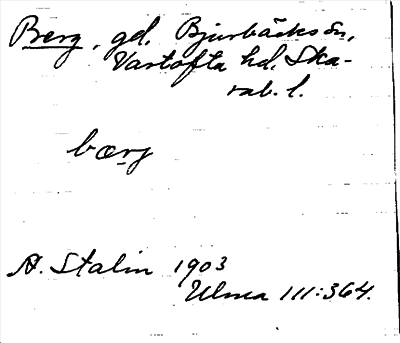 Berg, gd. Bjurbäcks sn,
Vartofta hd. Ska-
rab. l.
bærg
A. Stalin 1903
Ulma 111:364.